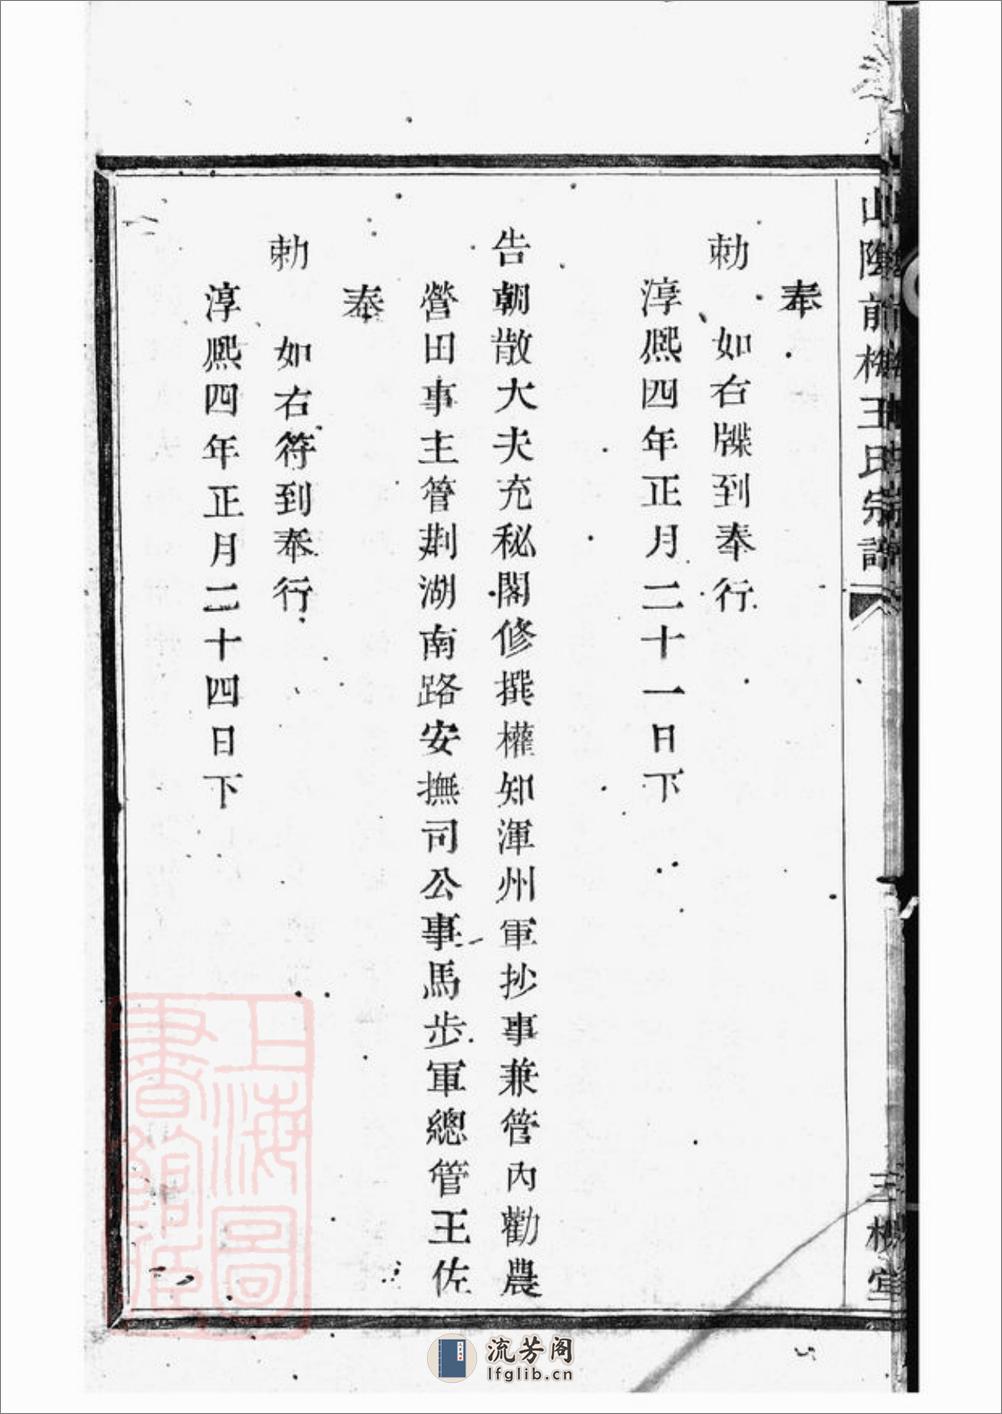 山陰前梅王氏宗譜
三槐堂
奉
勅 如右牒到奉行
淳熙四年正月二十一日下
告朝散大夫充秘閣修撰權知渾州軍抄事兼管內勸農
營田事主管荆湖南路安撫司公事馬步軍總管王佐
奉
勅 如右符到奉行
淳熙四年正月二十四日下
上海圖
書館藏
流芳阁
lfglib.cn